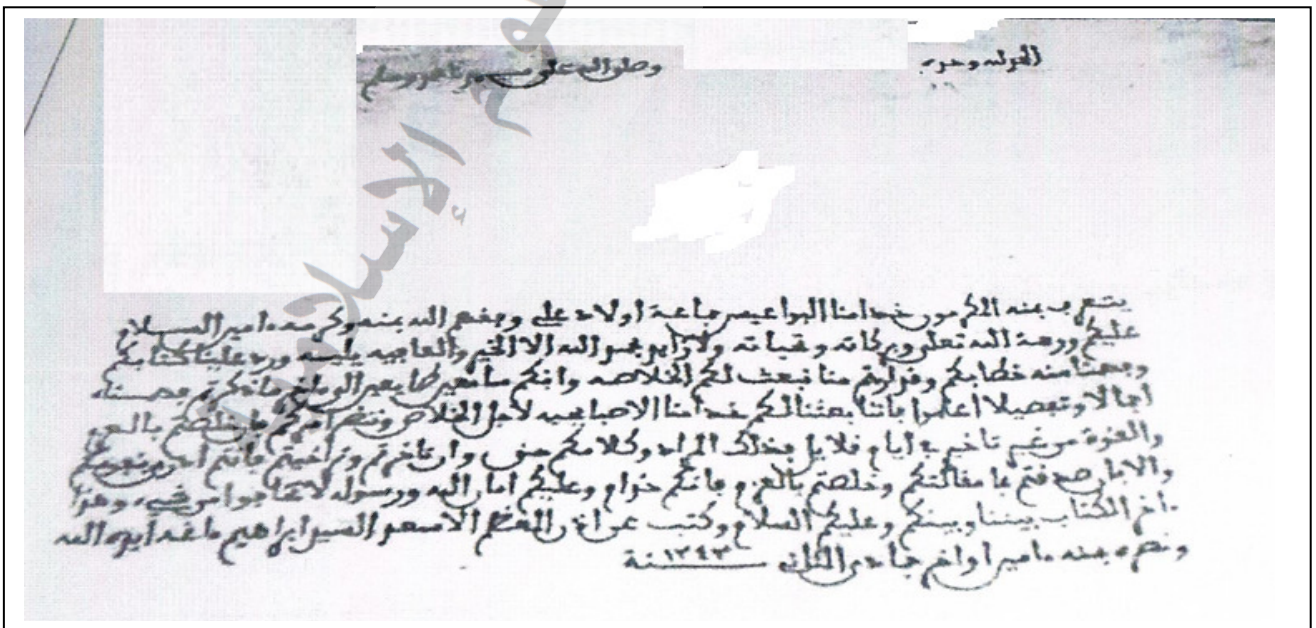 الحمد لله وحده
وصلى الله على سيدنا محمد وآله وسلم
يتعرف بمنه المكرمون خدامنا البواعيس جماعة اولاد علي وفقهم الله بمنه وكرمه ءامين السلام
عليكم ورحمة الله تعلى وبركاته وتحياته ولا زايد بحمد الله الا الخير والعافية يليه ورد علينا كتابكم
وفهمنا منه خطابكم ومرادكم منا نبعث لكم الخلاصه وانكم سامعين طايعين الى ما ذكرتم
اجمالا وتفصيلا اعلموا باننا بعثنا لكم خدامنا لاجل الخلاص ونظر امركم فان خلصتم بالعزم
والقوة من غير تاخير ايام قلايل فذلك المراد وكلامكم وان تاخرتم وتراخيتم فانتم
والا بان صدقتم بما مقالتكم وخلصتم بالعزم فانكم خدام وعليكم امان الله ورسوله لا تخافوا من شيء وهذا
ءاخر الكتاب بيننا وبينكم وعليكم السلام وكتب عن اذن المعظم الاسعد السيد ابراهيم ايده الله
ونصره بمنه ءامين اواخر جمادى الثاني سنة ١٢٤٣
الإسلامية